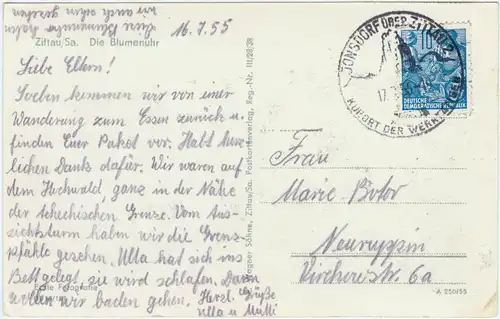 16.7.55
Diese Blumenuhr haben
wir auch schon gesehen
Zittau/Sa. Die Blumenuhr
Liebe Eltern!
Soeben kommen wir von einer
Wanderung zum Essen zurück u.
finden Euer Paket vor. Habt herz-
lichen Dank dafür. Wir waren auf
dem Hochwald, ganz in der Nähe
der tschechischen Grenze. Vom Aus-
sichtsturm haben wir die Grenz-
pfähle gesehen. Ulla hat sich ins
Bett gelegt, sie wird schlafen. Dann
wollen wir baden gehen. Herzl. Grüße
Ulla u. Mutti
Echte Fotografie
Wagner Söhne, Zittau/Sa. Postkartenverlag, Reg.-Nr. III/28/38
JONSDORF ÜBER ZITTAU 2
17.
KURORT DER WERKTÄTIGEN
10
DEUTSCHE
DEMOKRATISCHE REPUBLIK
Frau
Marie
Neuruppin
Kirchnerstr. 6a
A 250/55